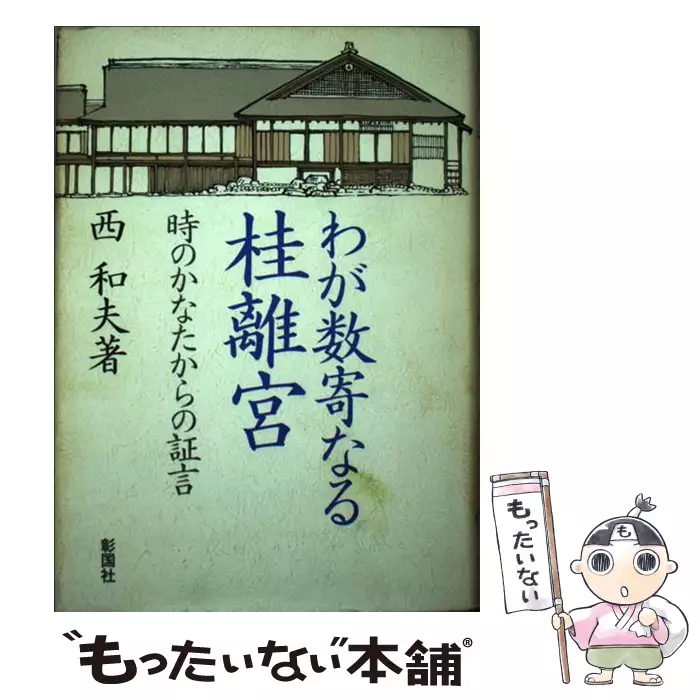 わが数寄なる
桂離宮
時のかなたからの証言
西和夫著
彰国社
もったいない
も
"もったいない"本舗®